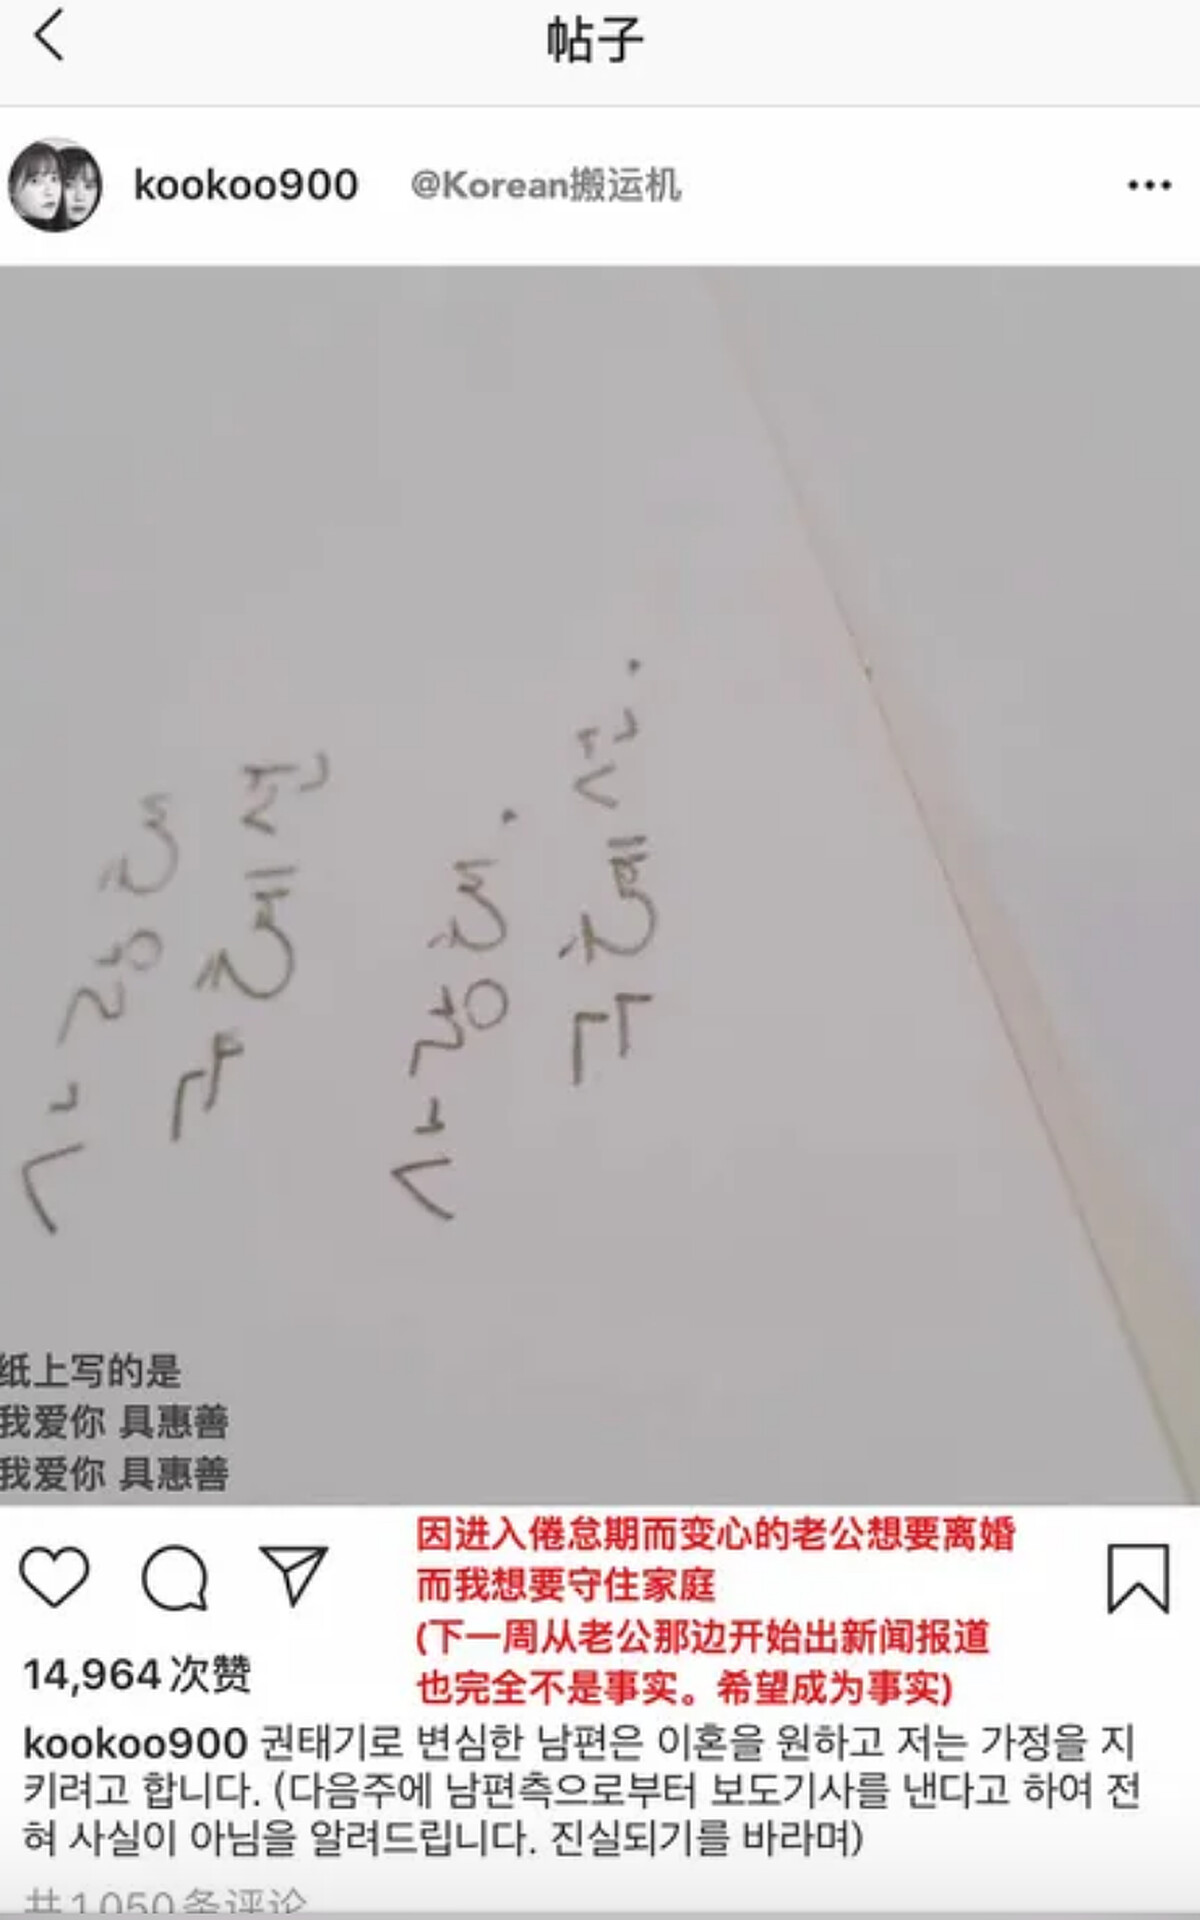 帖子
kookoo900 @Korean搬运机
사랑해
구혜선
사랑해.
구혜선.
纸上写的是
我爱你 具惠善
我爱你 具惠善
因进入倦怠期而变心的老公想要离婚
而我想要守住家庭
(下一周从老公那边开始出新闻报道
也完全不是事实。希望成为事实)
14,964次赞
kookoo900 권태기로 변심한 남편은 이혼을 원하고 저는 가정을 지
키려고 합니다. (다음주에 남편측으로부터 보도기사를 낸다고 하여 전
혀 사실이 아님을 알려드립니다. 진실되기를 바라며)
共1,050条评论